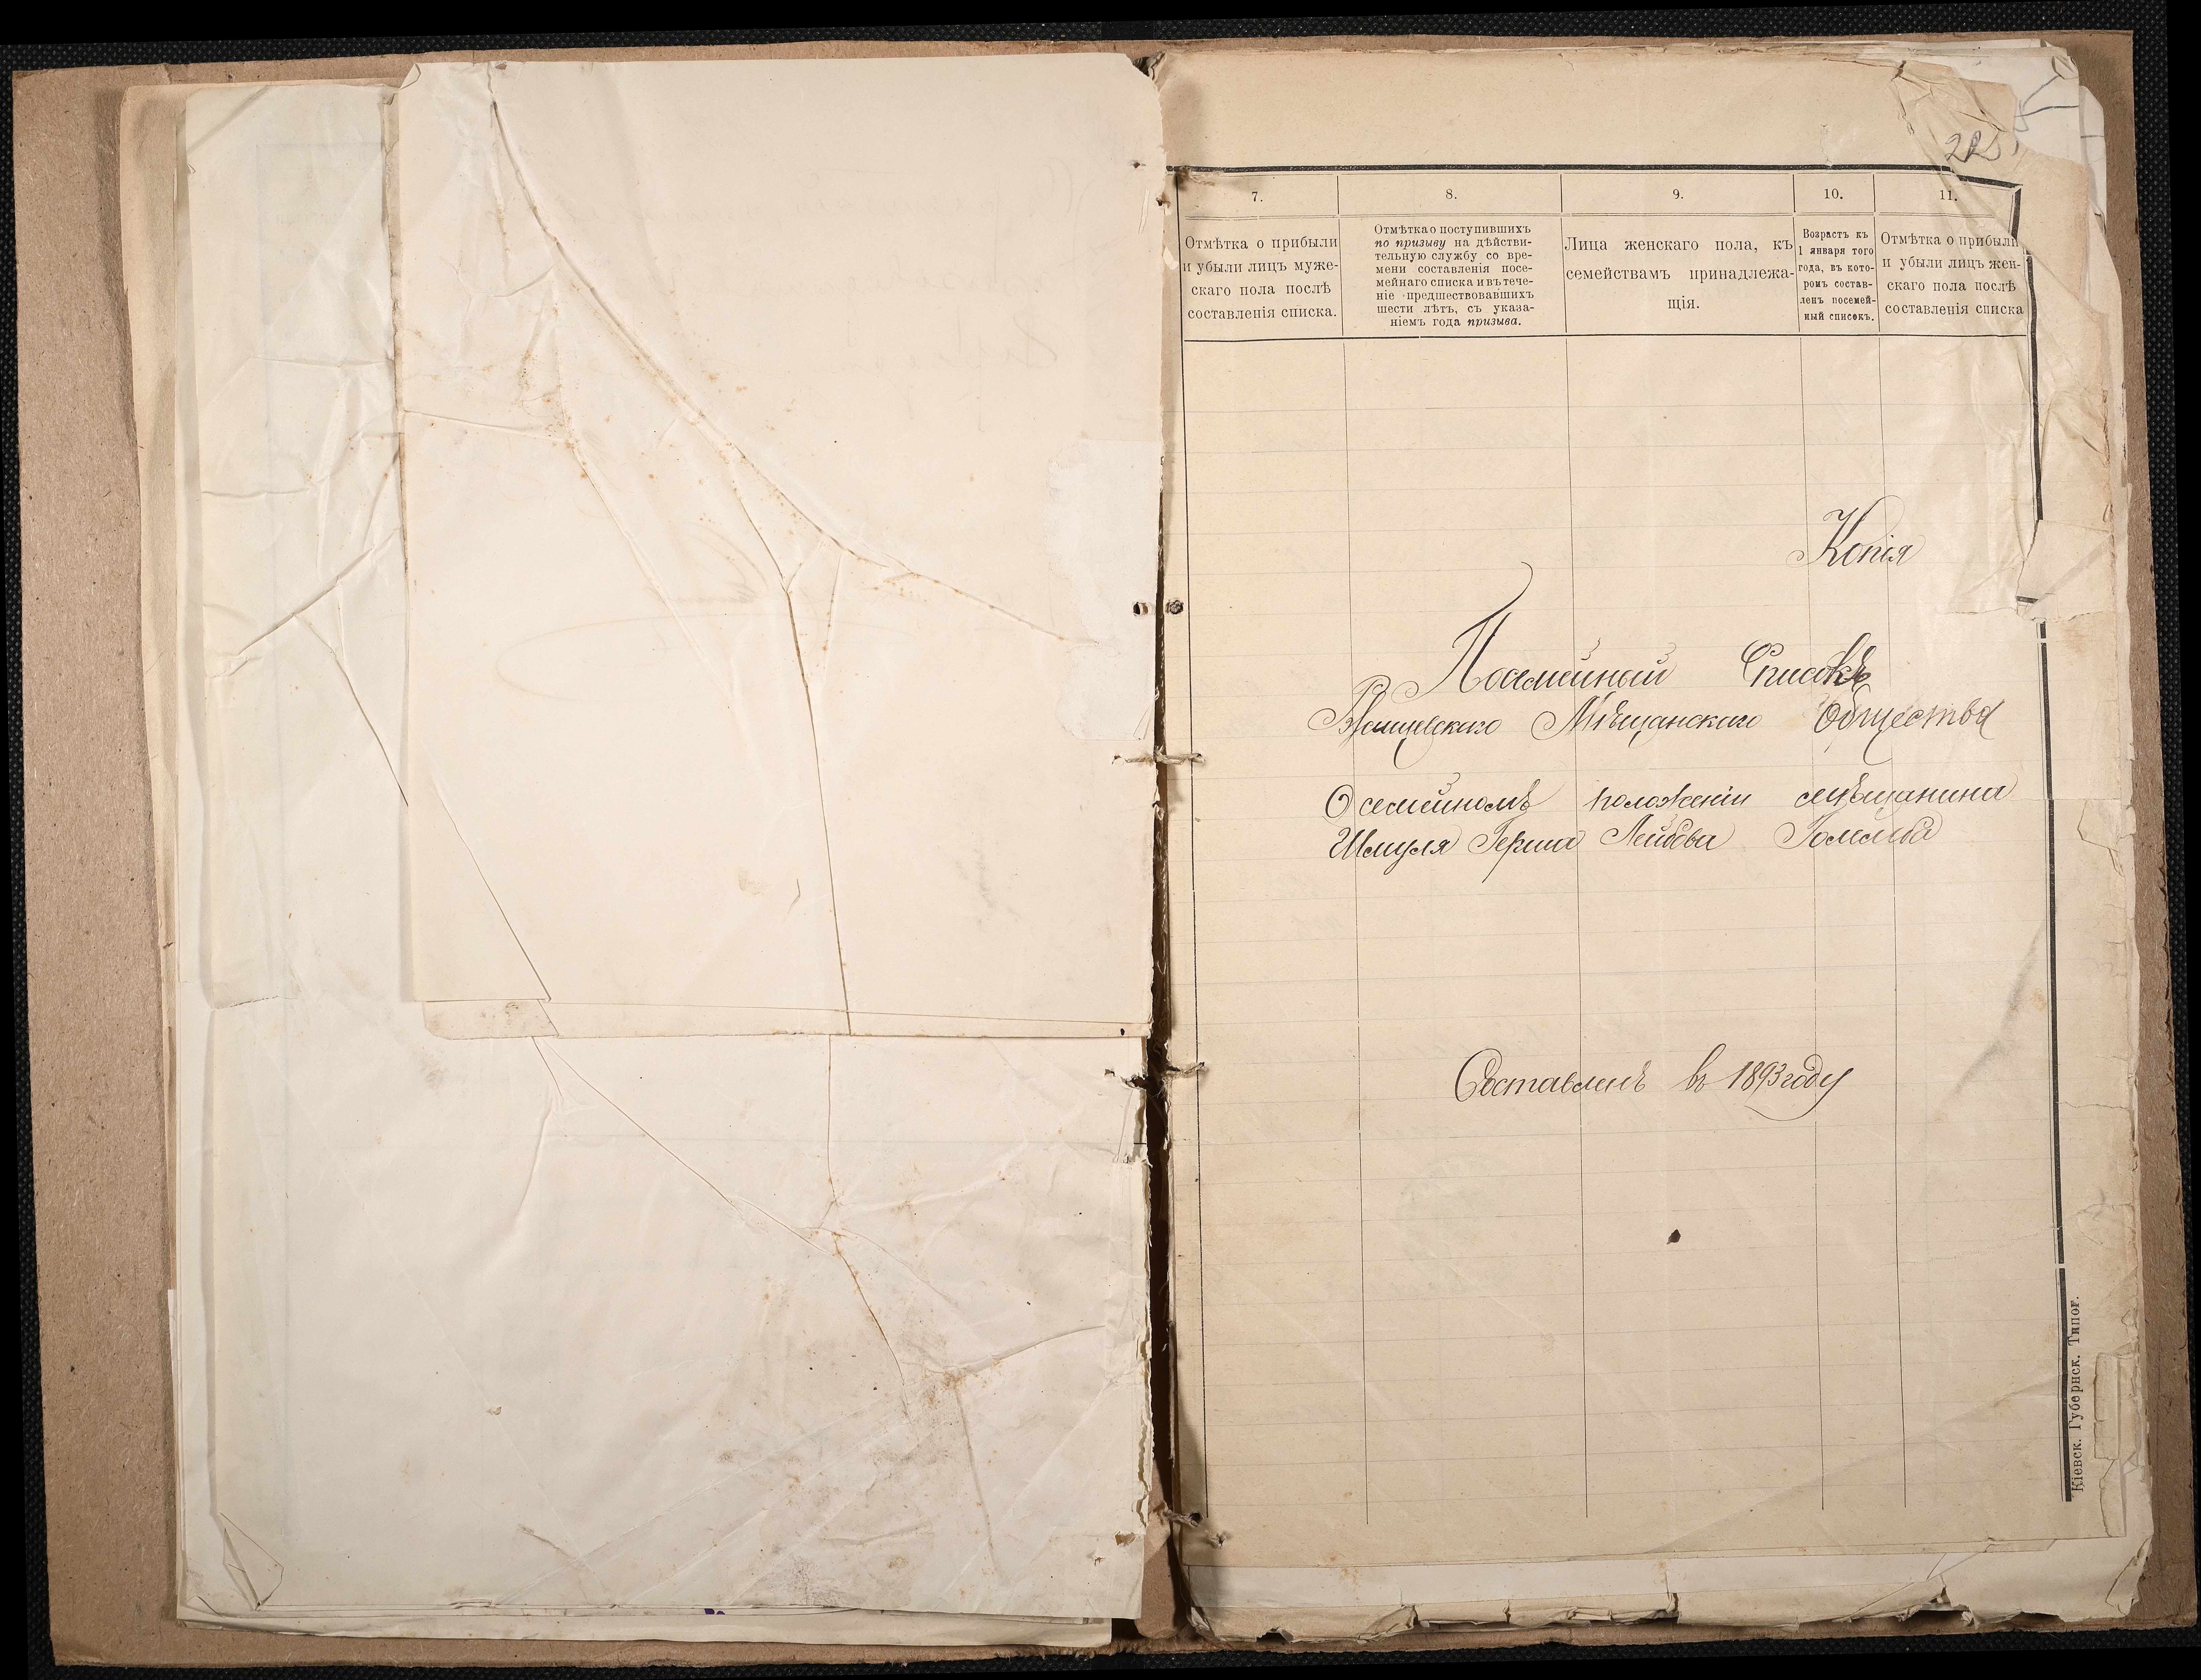 225
7. 8. 9. 10. 11.
Отмѣтка о прибыли
и убыли лицъ муже-
скаго пола послѣ
составленія списка.
Отмѣтка о поступившихъ
по призыву на дѣйстви-
тельную службу со вре-
мени составленія посе-
мейнаго списка и въ тече-
ніе предшествовавшихъ
шести лѣтъ, съ указа-
ніемъ года призыва.
Лица женскаго пола, къ
семействамъ принадлежа-
щія.
Возрастъ къ
1 января того
года, въ кото-
ромъ состав-
ленъ посемей-
ный списокъ.
Отмѣтка о прибыли
и убыли лицъ жен-
скаго пола послѣ
составленія списка
Копія
Посемейный Списокъ
Мѣщанскаго Общества
О семейномъ положеніи мѣщанина
Шмуля Герша Лейбова
Составленъ въ 1893 году
Кіевск. Губернск. Типог.